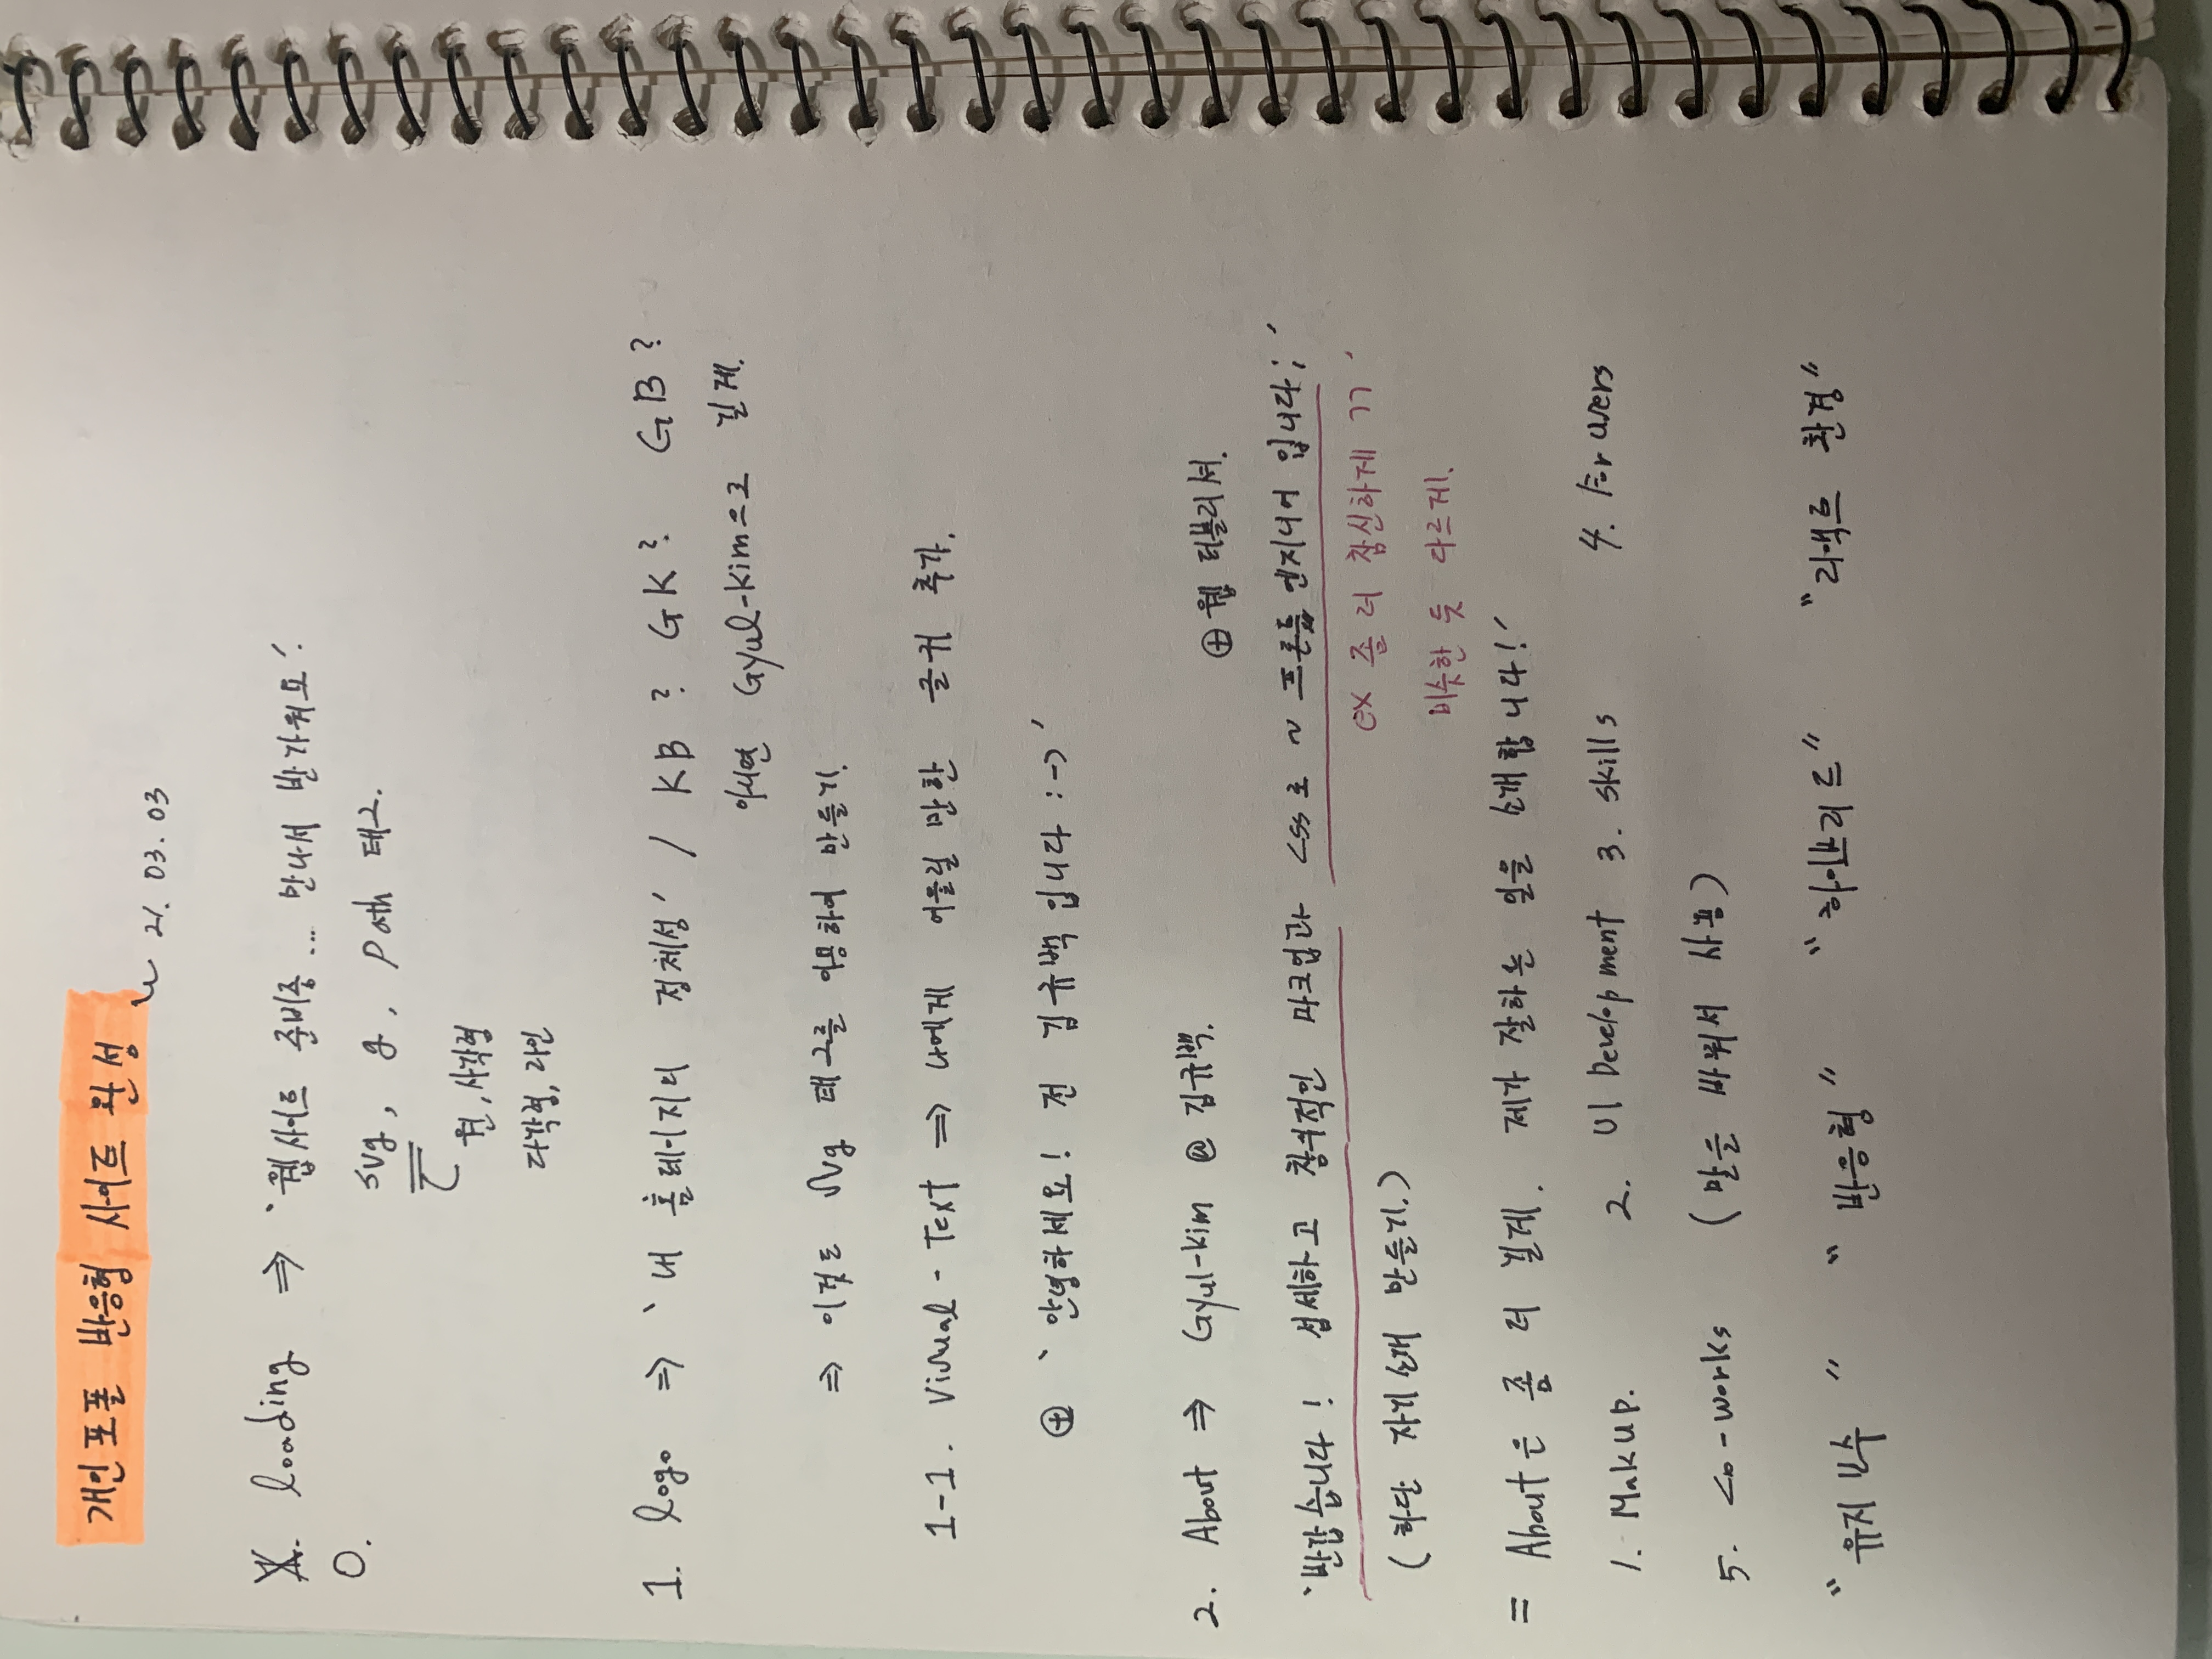 개인포폴 반응형 사이트 완성
21. 03. 03
loading ⇒ '웹사이트 준비중... 만나서 반가워요'
0.
svg, g, path 태그.
원, 사각형
다각형, 라인
1. logo ⇒ '내 홈페이지의 정체성' / KB? GK? GB?
아니면 Gyul-kim으로 길게.
⇒ 이것도 svg 태그를 이용하여 만들기.
1-1. Visual-Text ⇒ 나에게 어울릴 만한 글귀 추가.
⊕ '안녕하세요! 전 김규백입니다 :->'
2. About ⇒ Gyul-kim @ 김규백.
⊕ 웹 퍼블리셔.
'반갑습니다! 섬세하고 창의적인 마크업과 css로 ~ 프론트 엔지니어 입니다;'
(하단 자기소개 만들기.)
ex 좀 더 참신하게 ㄱㄱ'
비슷한 듯 다르게.
= About은 좀 더 길게. 제가 잘하는 일을 소개합니다!'
1. Makup. 2. UI Development 3. skills 4. For users
5. Co-works (말을 바꿔서 사용)
"유지보수" "반응형" "하이브리드" "리액트 환경"